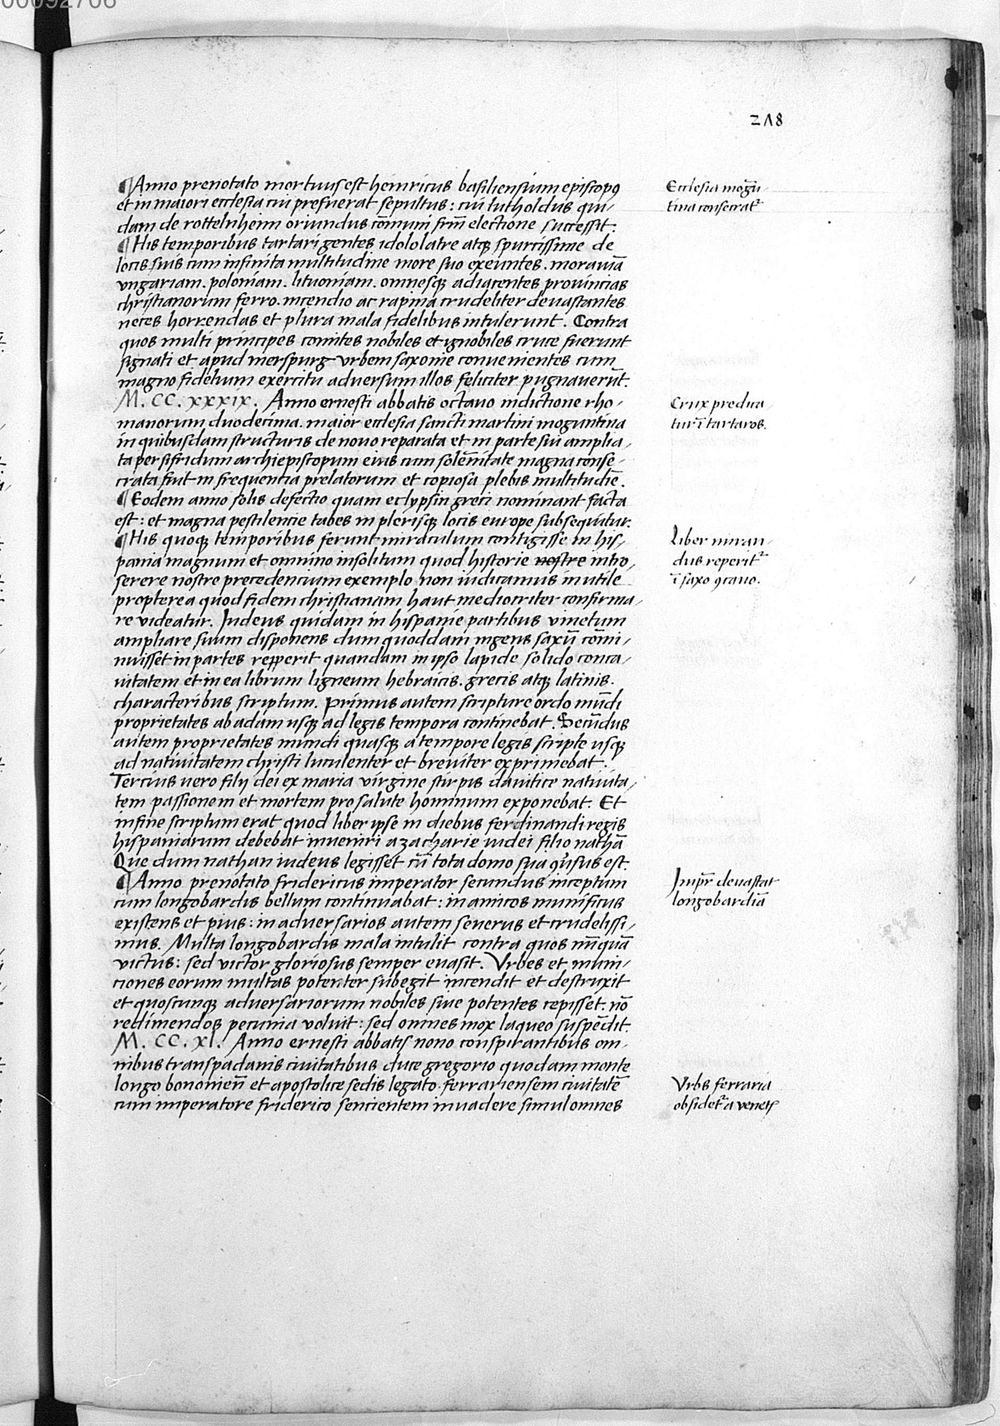 00092706
218
¶Anno prenotato mortuus est heinricus basiliensium episcopꝰ
et in maiori ecclesia cui prefuerat sepultus: cui lutholdus qui-
dam de rottelnheim oriundus cōmuni frm̄ electione successit.
¶His temporibus tartari gentes idololatre atqꝫ spurcissime de
locis suis cum infinita multitudine more suo exeuntes. morauiā
vngariam. poloniam. lituoniam. omnesqꝫ adiacentes prouincias
christianorum ferro. incendio ac rapina crudeliter deuastantes
neces horrendas et plura mala fidelibus intulerunt. Contra
quos multi principes comites nobiles et ignobiles cruce fuerunt
signati et apud merspurg vrbem saxonie conuenientes cum
magno fidelium exercitu aduersum illos feliciter pugnauerūt.
M. CC. xxxix. Anno ernesti abbatis octauo indictione rho-
manorum duodecima. maior ecclesia sancti martini moguntina
in quibusdam structuris de nouo reparata et in parte sui amplia-
ta per sifridum archiepiscopum eius cum solēnitate magna conse-
crata fuit in frequentia prelatorum et copiosa plebis multitudīe.
¶Eodem anno solis defectio quam eclypsin greci nominant facta
est: et magna pestilencie tabes in plerisqꝫ locis europe subsequitur.
¶His quoqꝫ temporibus ferunt miraculum contigisse in his-
pania magnum et omnino insolitum quod historie nostre intro-
serere nostre precedencium exemplo non iudicamus inutile
propterea quod fidem christianam haut mediocriter confirma-
re videatur. Iudeus quidam in hispanie partibus vinetum
ampliare suum disponens dum quoddam ingens saxū comi-
nuisset in partes repperit quandam in ipso lapide solido conca-
uitatem et in ea librum ligneum hebraicis. grecis atqꝫ latinis.
characteribus scriptum. Primus autem scripture ordo mūdi
proprietates ab adam usqꝫ ad legis tempora continebat. Secūdus
autem proprietates mundi quasqꝫ a tempore legis scripte usqꝫ
ad natiuitatem christi luculenter et breuiter exprimebat.
Tercius uero filij dei ex maria virgine stirpis dauitice natiuita-
tem passionem et mortem pro salute hominum exponebat. Et
in fine scriptum erat quod liber ipse in diebus ferdinandi regis
hispaniarum debebat inueniri a zacharie iudei filio nathā
Que dum nathan iudeus legisset cū tota domo sua 9uersus est.
¶Anno prenotato fridericus imperator secundus inceptum
cum longobardis bellum continuabat: in amicos munificus
existens et pius: in aduersarios autem seuerus et crudelissi-
mus. Multa longobardis mala intulit contra quos nūquā
victus: sed victor gloriosus semper euasit. Vrbes et muni-
ciones eorum multas potenter subegit incendit et destruxit
et quoscunqꝫ aduersariorum nobiles siue potentes cepisset. nō
redimendos pecunia voluit: sed omnes mox laqueo suspēdit.
M. CC. xl. Anno ernesti abbatis nono conspirantibus om-
nibus transpadanis ciuitatibus duce gregorio quodam monte
longo bononien̄ et apostolice sedis legato. ferrariensem ciuitatē
cum imperatore friderico sencientem inuadere simul omnes
Ecclesia mogū-
tina consecrat̄
Crux predica-
tur ī tartaros.
Liber miran-
dus reperit̄
ī saxo 9cauo.
Impr̄ deuastat
longobardiā
Vrbs ferraria
obsidet̄ a venetꝭ